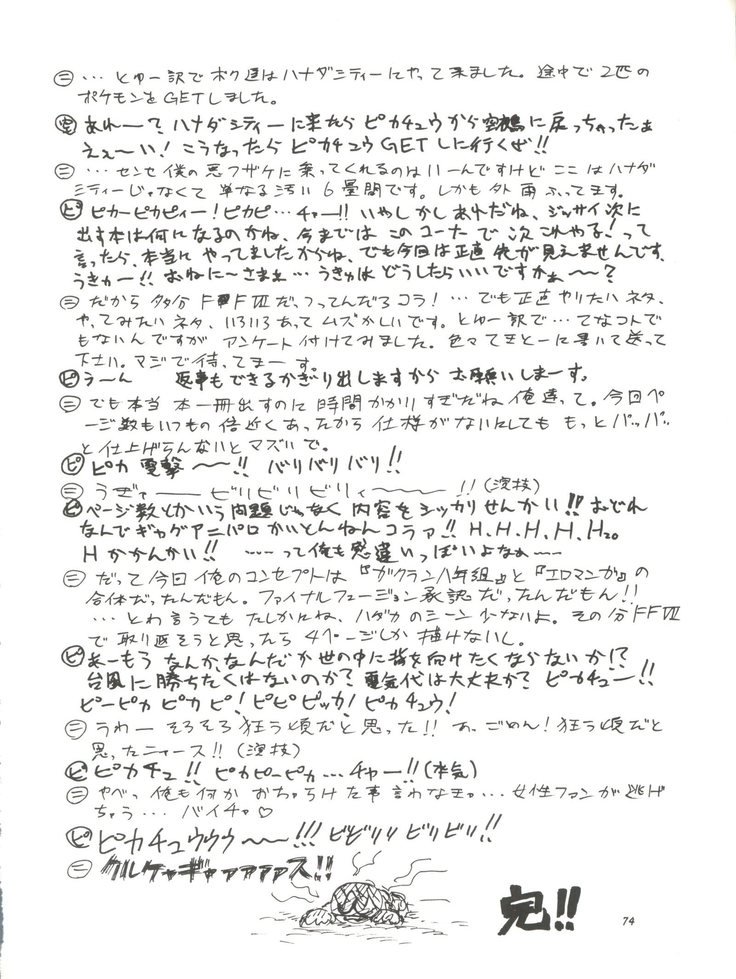 ㊁…とゆー訳でボク達はハナダシティーにやって来ました。途中で2匹の
ポケモンをGETしました。
あれー？ハナダシティーに来たらピカチュウから空鶴に戻っちゃったぁ
えぇ〜い！こうなったらピカチュウGETしに行くぜ!!
㊁…センセ僕の悪フザケに乗ってくれるのはいーんですけどここはハナダ
シティーじゃなくて単なる汚い6畳間です。しかも外雨ふってます。
ピピカーピカピィー！ピカピ…チャー!!いやしかしあれだね、ジッサイ次に
出す本は何になるのかね、今まではこのコーナーで次これやる！って
言ったら、本当にやってましたからね、でも今回は正直先が見えませんです、
うきゃー!!おねに〜さまぇ…うきゅはどうしたらいいですかぁ〜〜？
㊁だから多分FFⅦだっつってんだろコラ！…でも正直やりたいネタ、
やってみたいネタ、いろいろあってムズかしいです。とゆー訳で…てなコトで
もないんですがアンケート付けてみました。色々てきとーに書いて送って
下さい。マジで待ってまーす。
ピうーん 返事もできるかぎり出しますからお願いしまーす。
㊁でも本当本一冊出すのに時間かかりすぎだね俺達って。今回ペ
ージ数もいつもの倍近くあったから仕様がないにしてももっとパッパッ
と仕上げらんないとマズいで。
ピピカ電撃〜〜!!バリバリバリ!!
㊁うぎゃーービリビリビリィ〜〜〜!!(演技)
ピページ数とかいう問題じゃなく内容をシッカリせんかい!!おどれ
なんでギャグアニパロかいとんねんコラァ!!H.H.H.H.H₂₀
Hかかんかい!!……って俺も悪違いっぽいよなぁ〜〜
㊁だって今回俺のコンセプトは『ガクラン八年組』と『エロマンガ』の
合体だったんだもん。ファイナルフュージョン承認だったんだもん!!
…とわ言うてもたしかにね、ハダカのシーン少ないよ。その分FFⅦ
で取り返そうと思ったら4ページしか描けないし。
ピあーもうなんか、なんだか世の中に背を向けたくならないか!?
台風に勝ちたくはないのか？電気代は大丈夫か？ピカチュー!!
ピーピカピカピ！ピピピッカ！ピカチュウ！
㊁うわーそろそろ狂う頃だと思った!!あ、ごめん！狂う頃だと
思ったニャース!!(演技)
ピピカチュ!!ピカピーピカ…チャー!!(本気)
㊁やべっ俺も何かおちゃらけた事言わなきゃ…女性ファンが逃げ
ちゃう…バイチャ♡
ピピカチュウウウ〜〜!!!ビビリリビリビリ!!
㊁クルケャギャァァァァス!!
完!!
74